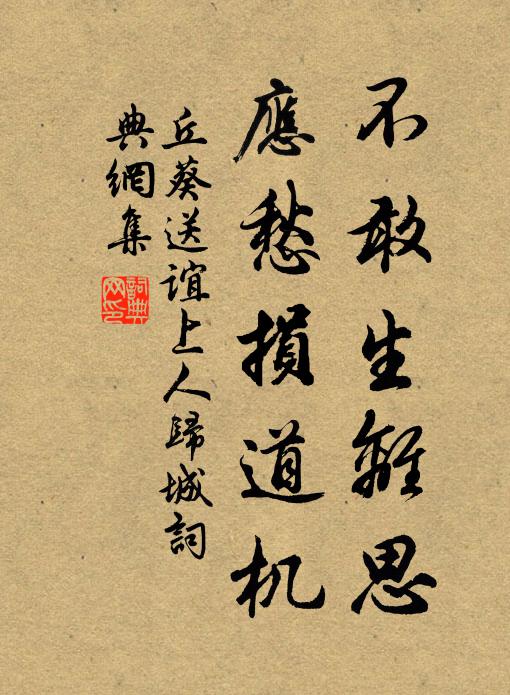 不敢生離思
應愁損道机
丘葵送誼上人歸城詞
典網集
詞典
网印